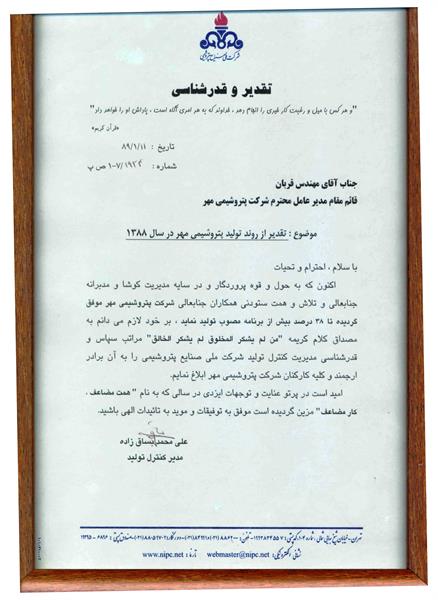 شرکت ملی صنایع پتروشیمی
تقدیر و قدرشناسی
"و هر کس با میل و رغبت کار خیری را انجام دهد ، خداوند که به هر امری آگاه است ، پاداش او را خواهد داد"
«قرآن کریم»
تاریخ : ۸۹/۱/۱۱
شماره : ص پ
جناب آقای مهندس قربان
قائم مقام مدیر عامل محترم شرکت پتروشیمی مهر
موضوع : تقدیر از روند تولید پتروشیمی مهر در سال ۱۳۸۸
با سلام ، احترام و تحیات
اکنون که به حول و قوه پروردگار و در سایه مدیریت کوشا و مدبرانه
جنابعالی و تلاش و همت ستودنی همکاران جنابعالی شرکت پتروشیمی مهر موفق
گردیده تا ۳۸ درصد بیش از برنامه مصوب تولید نماید ، بر خود لازم می دانم به
مصداق کلام کریمه "من لم یشکر المخلوق لم یشکر الخالق" مراتب سپاس و
قدرشناسی مدیریت کنترل تولید شرکت ملی صنایع پتروشیمی را به آن برادر
ارجمند و کلیه کارکنان شرکت پتروشیمی مهر ابلاغ نمایم.
امید است در پرتو عنایت و توجهات ایزدی در سالی که به نام " همت مضاعف ،
کار مضاعف" مزین گردیده است موفق به توفیقات و موید به تائیدات الهی باشید.
علی محمد بساق زاده
مدیر کنترل تولید
تهران-خیابان شیخ بهایی شمالی ، شماره ۱۰۴-کدپستی : ۱۹۹۴۸۳۴۵۵۷-تلفن : -دورنگار : -صندوق پستی : ۶۸۹۶-۱۹۳۹۵
نشانی الکترونیکی: webmaster@nipc.net تارنما : www.nipc.net